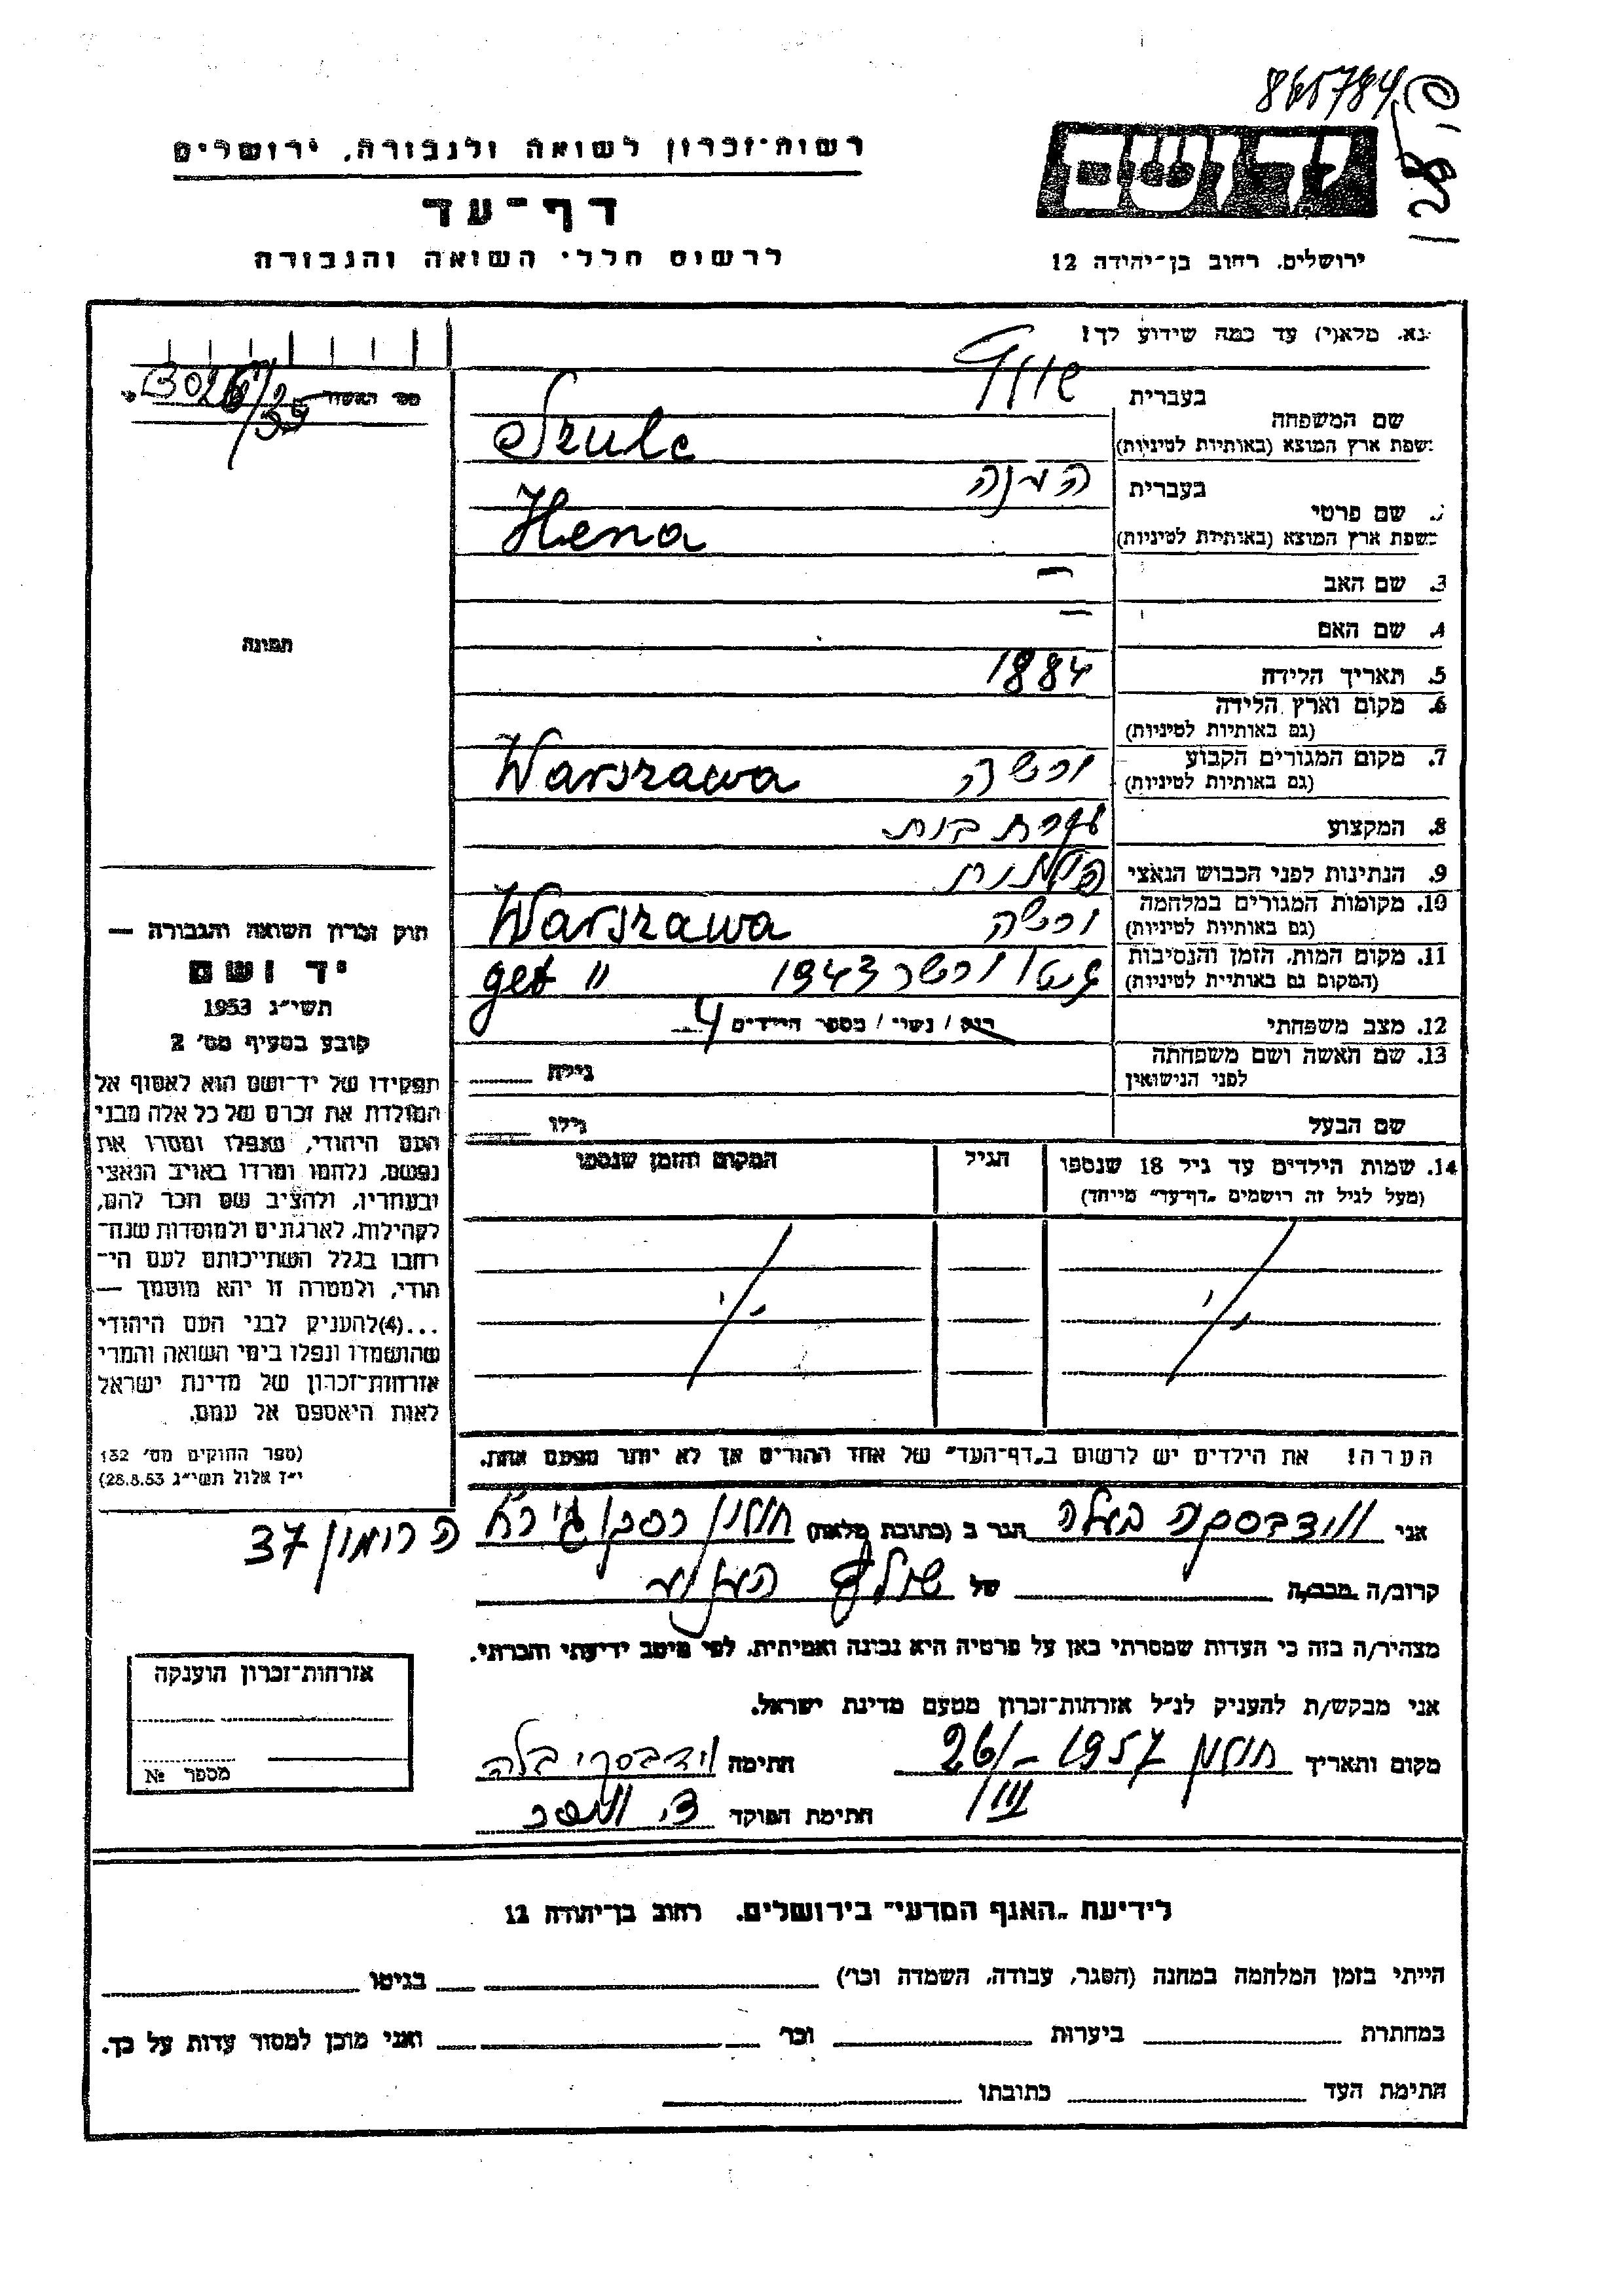 865784
רשות־זכרון לשואה ולגבורה, ירושלים
דף־עד
לרשום חללי השואה והגבורה
יד ושם
ירושלים, רחוב בן־יהודה 12
נא. מלא(י) עד כמה שידוע לך!
מס' האשור
שם המשפחה בעברית שולץ
שפת ארץ המוצא (באותיות לטיניות) Szulc
שם פרטי בעברית הענה
שפת ארץ המוצא (באותיות לטיניות) Hena
3. שם האב —
4. שם האם —
תמונה
5. תאריך הלידה 1884
6. מקום וארץ הלידה
(גם באותיות לטיניות)
7. מקום המגורים הקבוע ורשה Warszawa
(גם באותיות לטיניות)
8. המקצוע עקרת בית
9. הנתינות לפני הכבוש הנאצי פולנית
10. מקומות המגורים במלחמה ורשה Warszawa
(גם באותיות לטיניות)
11. מקום המות, הזמן והנסיבות גטו ורשה 1943 get "
(המקום גם באותיות לטיניות)
12. מצב משפחתי רוק / נשוי / מספר הילדים 4
13. שם האשה ושם משפחתה
לפני הנישואין
גילה
שם הבעל גילו
14. שמות הילדים עד גיל 18 שנספו הגיל המקום והזמן שנספו
(מעל לגיל זה רושמים „דף־עד" מיוחד)
הערה! את הילדים יש לרשום ב„דף־העד" של אחד ההורים אך לא יותר מפעם אחת.
חוק זכרון השואה והגבורה —
יד ושם
תשי"ג 1953
קובע בסעיף מס' 2
תפקידו של יד־ושם הוא לאסוף אל
המולדת את זכרם של כל אלה מבני
העם היהודי, שנפלו ומסרו את
נפשם, נלחמו ומרדו באויב הנאצי
ובעוזריו, ולהציב שם וזכר להם,
לקהילות, לארגונים ולמוסדות שנח־
רבו בגלל השתייכותם לעם הי־
הודי, ולמטרה זו יהא מוסמך —
...(4)להעניק לבני העם היהודי
שהושמדו ונפלו בימי השואה והמרי
אזרחות־זכרון של מדינת ישראל
לאות היאספם אל עמם.
(ספר החוקים מס' 132
י"ז אלול תשי"ג 28.8.53)
אני ווידבסקה בעלה הגר ב (כתובת מלאה) חולון הרימון 37
קרוב/ה מכר/ה של שולץ
מצהיר/ה בזה כי העדות שמסרתי כאן על פרטיה היא נכונה ואמיתית, לפי מיטב ידיעתי והכרתי.
אני מבקש/ת להעניק לנ"ל אזרחות־זכרון מטעם מדינת ישראל.
מקום ותאריך חולון 1957 – 26/III חתימה וידבסקי בלה
חתימת הפוקד
אזרחות־זכרון הוענקה
מספר №
לידיעת „האגף המדעי" בירושלים, רחוב בן־יהודה 12
הייתי בזמן המלחמה במחנה (הסגר, עבודה, השמדה וכו') בגיטו
במחתרת ביערות וכו' ואני מוכן למסור עדות על כך.
חתימת העד כתובתו